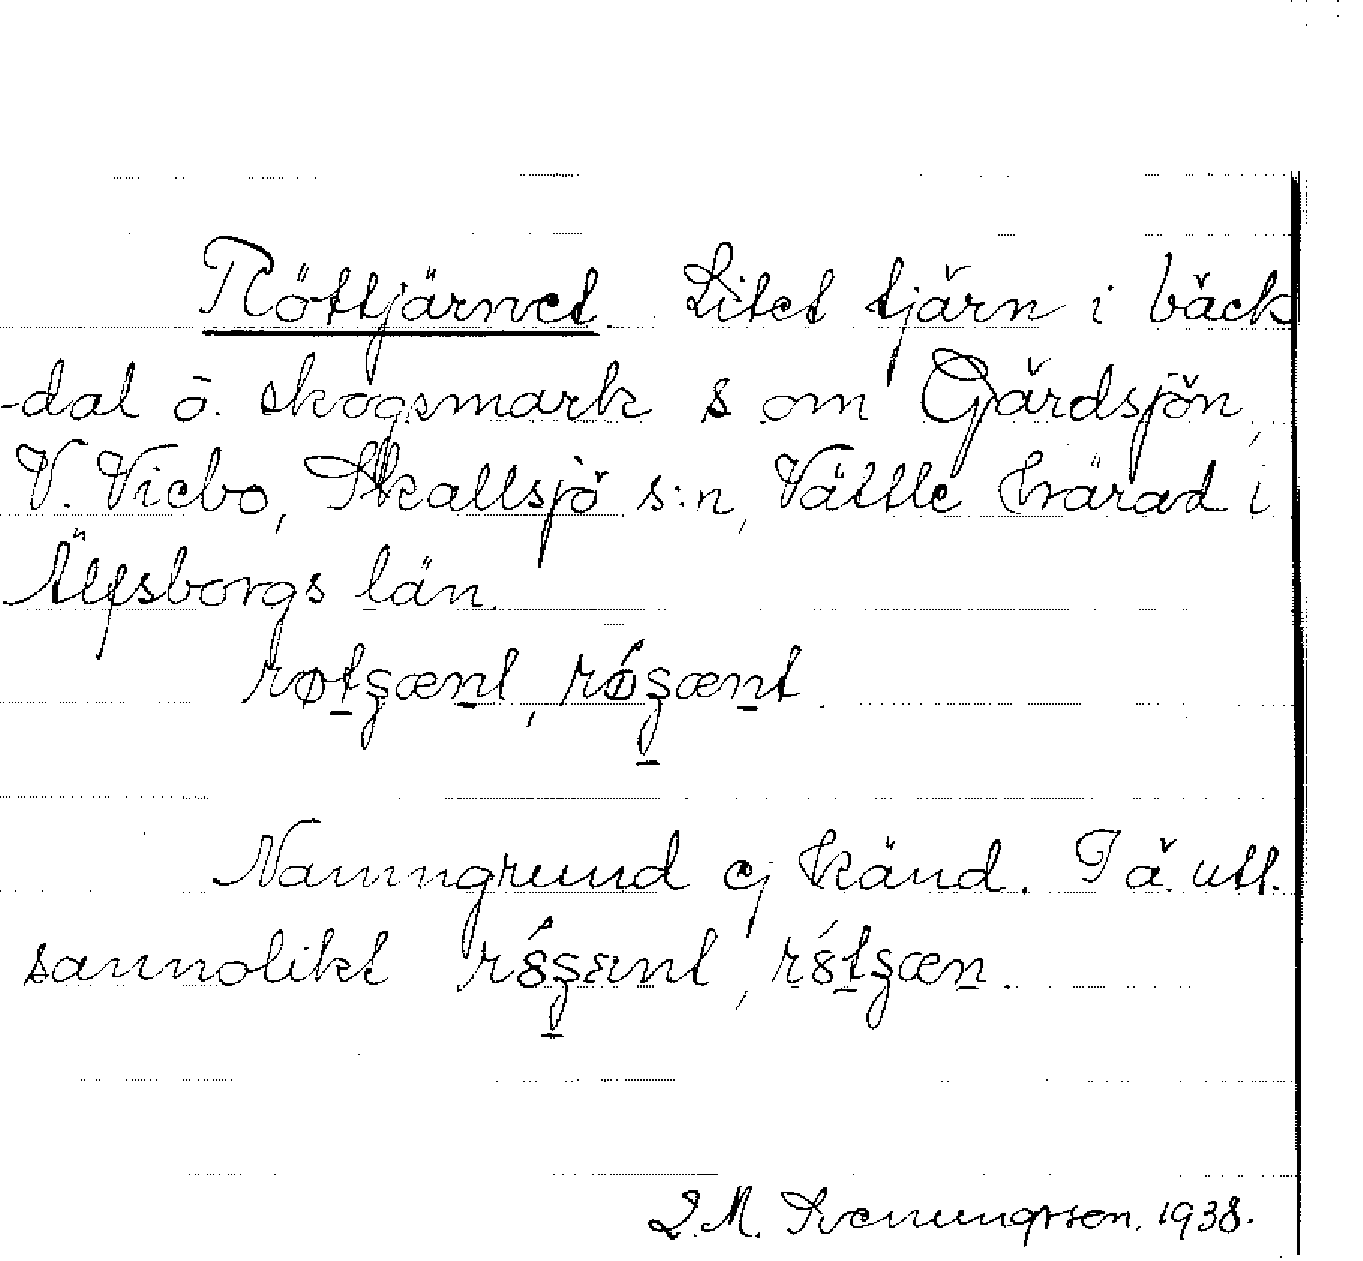 Röttjärnet. Litet tjärn i bäck
-dal å skogsmark s om Gärdsjön,
V. Viebo, Skallsjö s:n, Vättle härad i
Älfsborgs län.
røtʒænt, rǿʒænt.
Namngrund ej känd. I ä. utt.
sannolikt
S.M. Svenungsson. 1938.